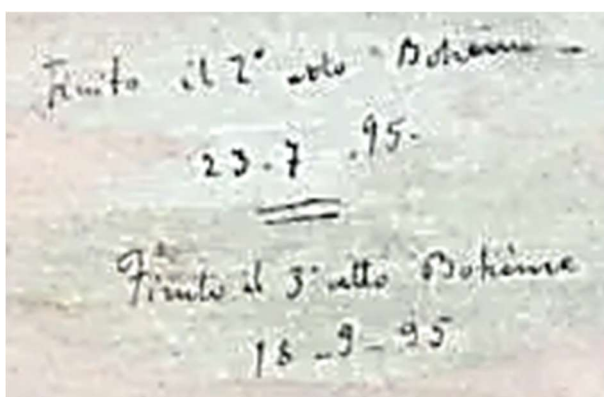 Finito il 2° atto Bohème -
23.7.95.
Finito il 3° atto Bohème
18-9-95